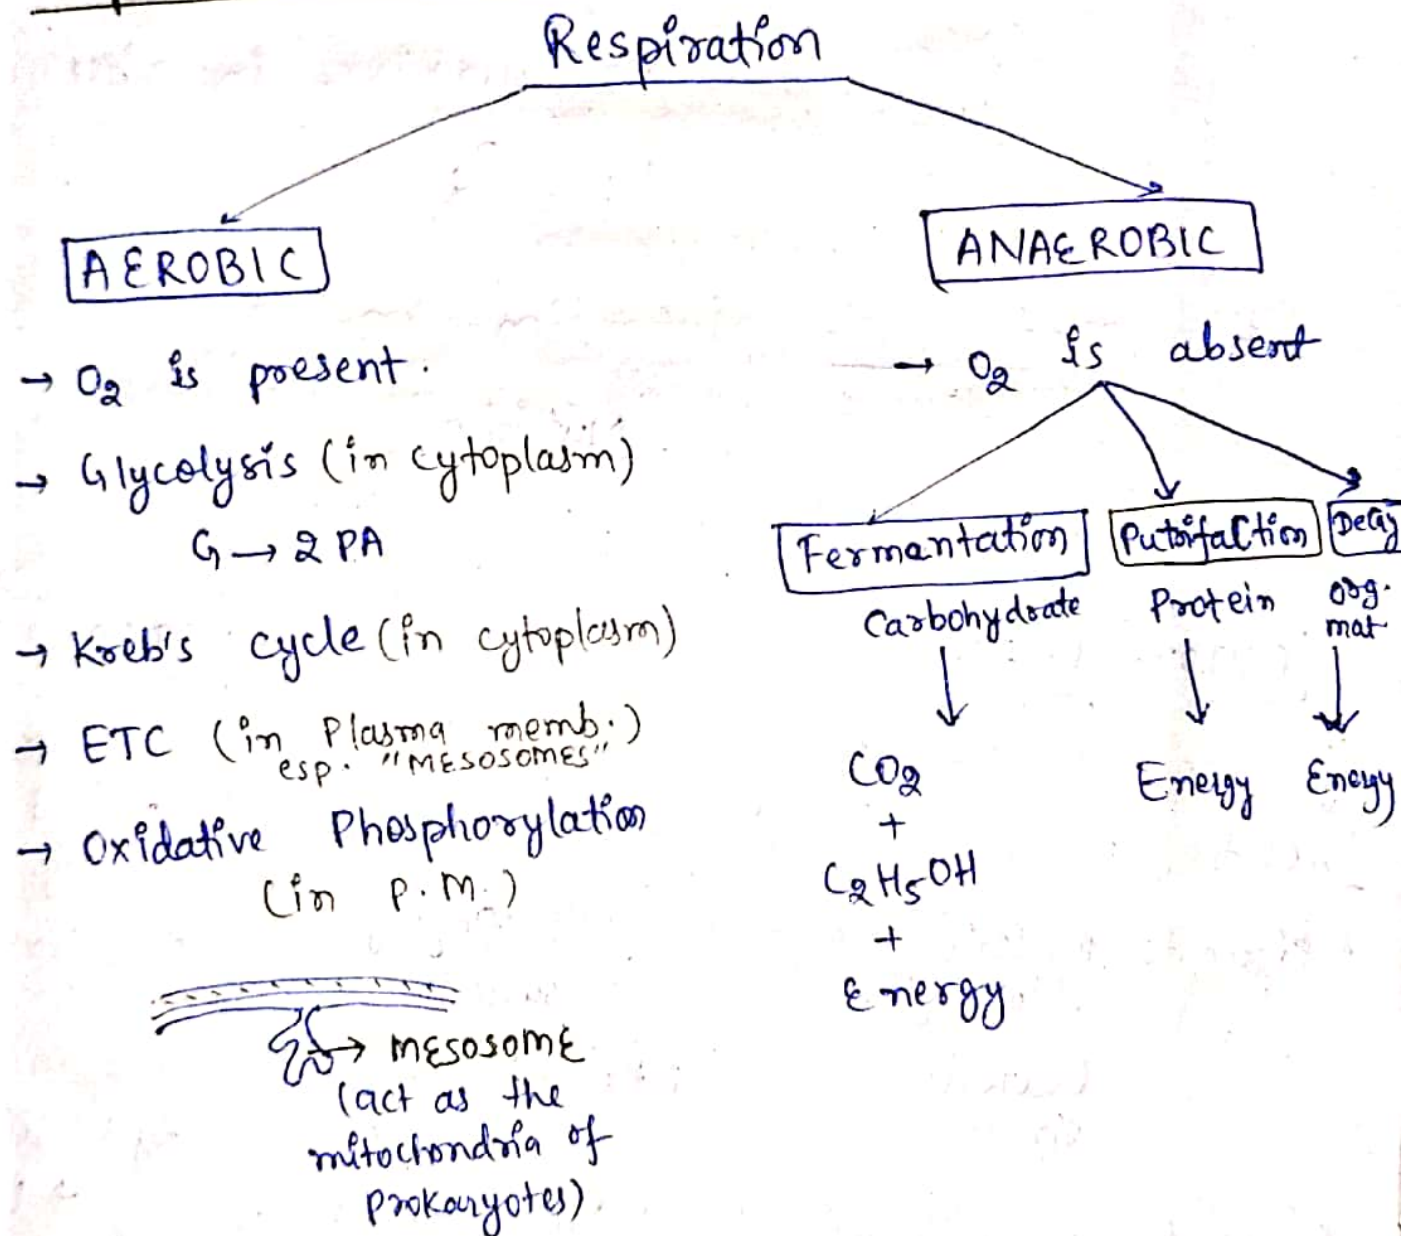 Respiration
AEROBIC
→ O2 is present.
→ Glycolysis (in cytoplasm)
G → 2 PA
→ Kreb's cycle (in cytoplasm)
→ ETC (in Plasma memb.)
esp. "MESOSOMES"
→ Oxidative Phosphorylation
(in P.M.)
→ MESOSOME
(act as the
mitochondria of
prokaryotes)
ANAEROBIC
→ O2 is absent
Fermantation
Carbohydrate
CO2
+
C2H5OH
+
Energy
Putrifaction
Protein
Energy
Decay
org.
mat
Energy